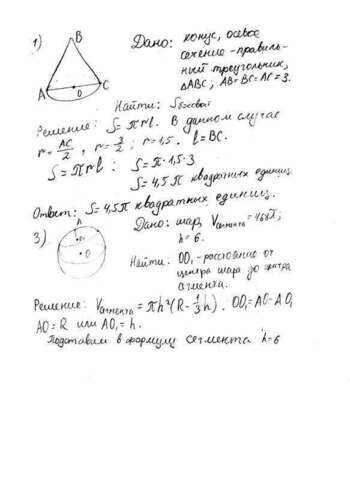 1) B Дано: конус, осевое
сечение - правиль-
ный треугольник,
A O C ΔABC, AB=BC=AC=3.
Найти: Sбоковой
Решение: S=πrl. В данном случае
r=AC/2, r=3/2; r=1,5. l=BC.
S=πrl: S=π·1,5·3
S=4,5π квадратных единиц.
Ответ: S=4,5π квадратных единиц.
3) A Дано: шар, Vсегмента=468π;
h=6.
O₁ O Найти: OO₁ - расстояние от
центра шара до центра
сегмента.
Решение: Vсегмента=πh²(R-1/3h). OO₁=AO-AO₁
AO=R или AO₁=h.
Подставим в формулу сегмента h=6